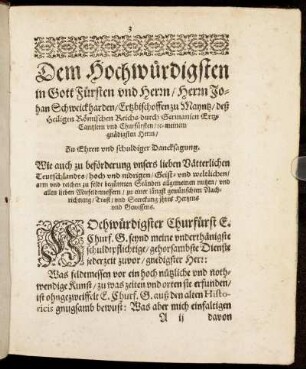 3
Dem Hochwürdigsten
in Gott Fürsten vnd Herrn / Herrn Jo-
han Schweickharden / Ertzbischoffen zu Mayntz / deß
Heiligen Römischen Reichs durch Germanien Ertz-
Cantzlern vnd Churfürsten / meinem
gnädigsten Herrn /
Zu Ehren vnd schuldiger Dancksagung.
Wie auch zu beförderung vnsers lieben Vätterlichen
Teutschlandes / hoch vnd nidrigen / Geist- vnd weltlichen /
arm vnd reichen zu feldt bezirmten Ständen allgemeinen nutzen / vnd
allen lieben Mitfeldmessern / zu einer längst gewünschten Nach-
richtung / Trost / vnd Sterckung jhres Hertzens
vnd Gewissens.
HOchwürdigster Churfürst E.
Churf. G. seynd meine vnderthänigste
schuldpflichtige / gehorsambste Dienste
jederzeit zuvor / gnedigster Herr:
Was feldmessen vor ein hoch nützliche vnd noth-
wendige Kunst / zu was zeiten vnd orten sie erfunden /
ist ohngezweiffelt E. Churf. G. auß den alten Histo-
ricis gnugsamb bewust: Was aber mich einfaltigen
A ij davon